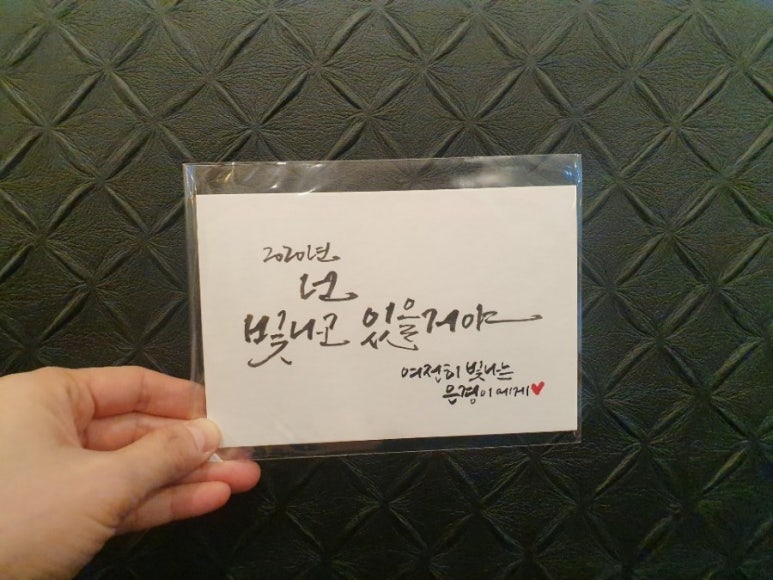 2020년
넌
빛나고 있을거야
여전히 빛나는
은경이에게♥